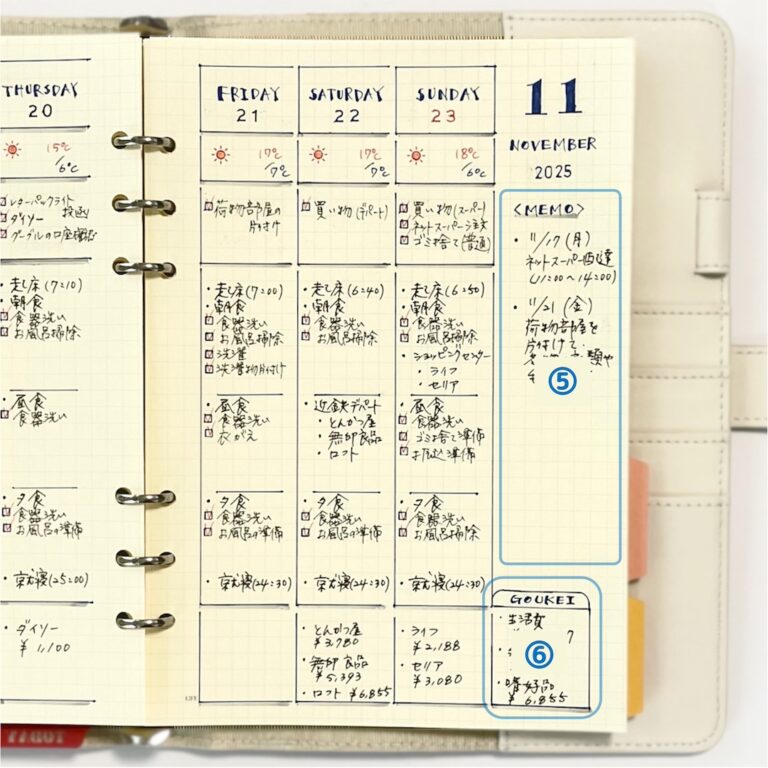 THURSDAY
20
15℃
/6℃
レターパックライト
投函
ダイソー
グーグルの口座確認
・起床(7:10)
・朝食
食器洗い
お風呂掃除
・昼食
食器洗い
・夕食
食器洗い
お風呂の準備
・就寝(25:00)
・ダイソー
¥1,100
FRIDAY
21
17℃
/7℃
荷物部屋の
片付け
・起床(7:00)
・朝食
食器洗い
お風呂掃除
洗濯
洗濯物片付け
・昼食
食器洗い
衣がえ
・夕食
食器洗い
お風呂の準備
・就寝(24:30)
SATURDAY
22
17℃
/7℃
買い物(デパート)
・起床(6:40)
・朝食
食器洗い
お風呂掃除
・近鉄デパート
・とんかつ屋
・無印良品
・ロフト
・夕食
食器洗い
お風呂の準備
・就寝(24:30)
・とんかつ屋
¥3,780
・無印良品
¥5,393
・ロフト ¥6,855
SUNDAY
23
18℃
/6℃
買い物(スーパー)
ネットスーパー注文
ゴミ捨て(普通)
・起床(6:50)
・朝食
食器洗い
お風呂掃除
・ショッピングセンター
・ライフ
・セリア
・昼食
食器洗い
ゴミ捨て準備
準備
・夕食
食器洗い
お風呂掃除
・就寝(24:30)
・ライフ
¥2,188
・セリア
¥3,080
11
NOVEMBER
2025
<MEMO>
・11/17(月)
ネットスーパー配達
(12:00〜14:00)
・11/21(金)
荷物部屋を
片付けて、
類や
⑤
GOUKEI
・生活費
7
⑥
・嗜好品
¥6,855